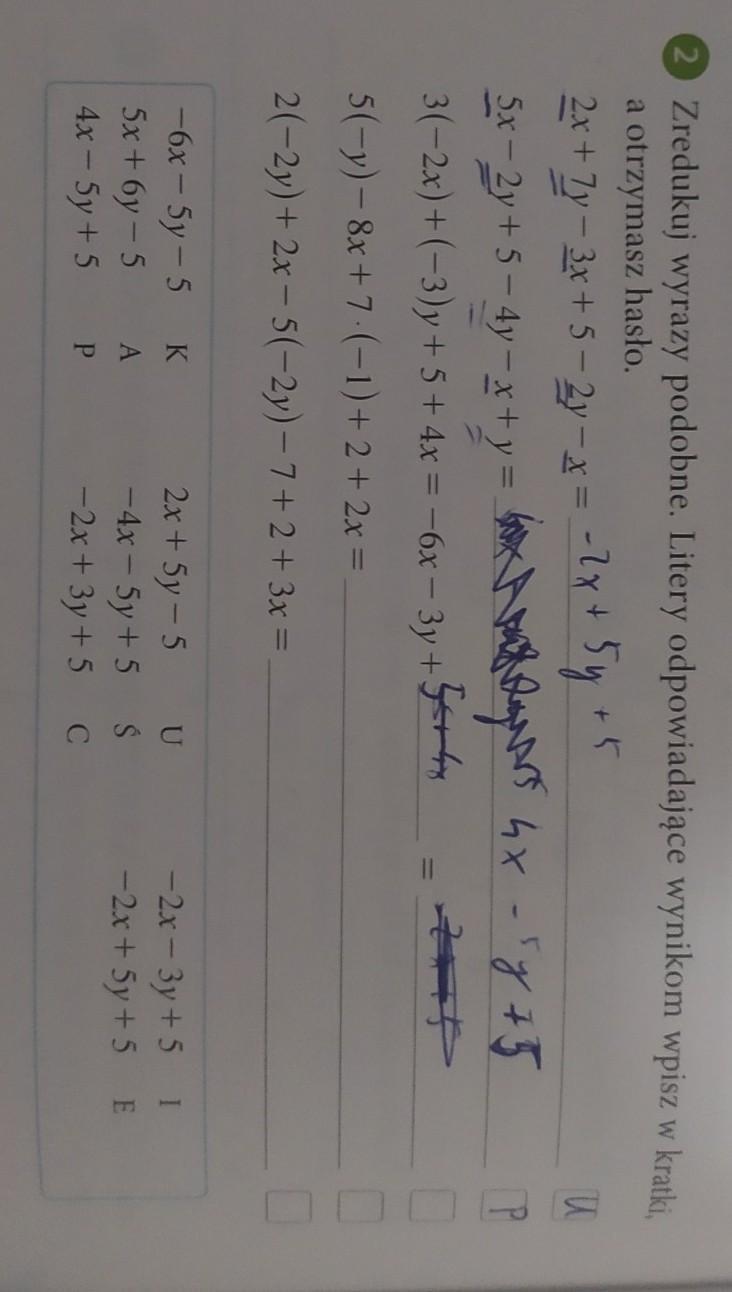 2 Zredukuj wyrazy podobne. Litery odpowiadające wynikom wpisz w kratki,
a otrzymasz hasło.
2x + 7y − 3x + 5 − 2y − x = -2x + 5y + 5 U
5x − 2y + 5 − 4y − x + y = 4x - 5y + 5 P
3(−2x) + (−3)y + 5 + 4x = −6x − 3y + 5+4x =
5(−y) − 8x + 7 · (−1) + 2 + 2x =
2(−2y) + 2x − 5(−2y) − 7 + 2 + 3x =
−6x − 5y − 5 K 2x + 5y − 5 U −2x − 3y + 5 I
5x + 6y − 5 A −4x − 5y + 5 Ś −2x + 5y + 5 E
4x − 5y + 5 P −2x + 3y + 5 C